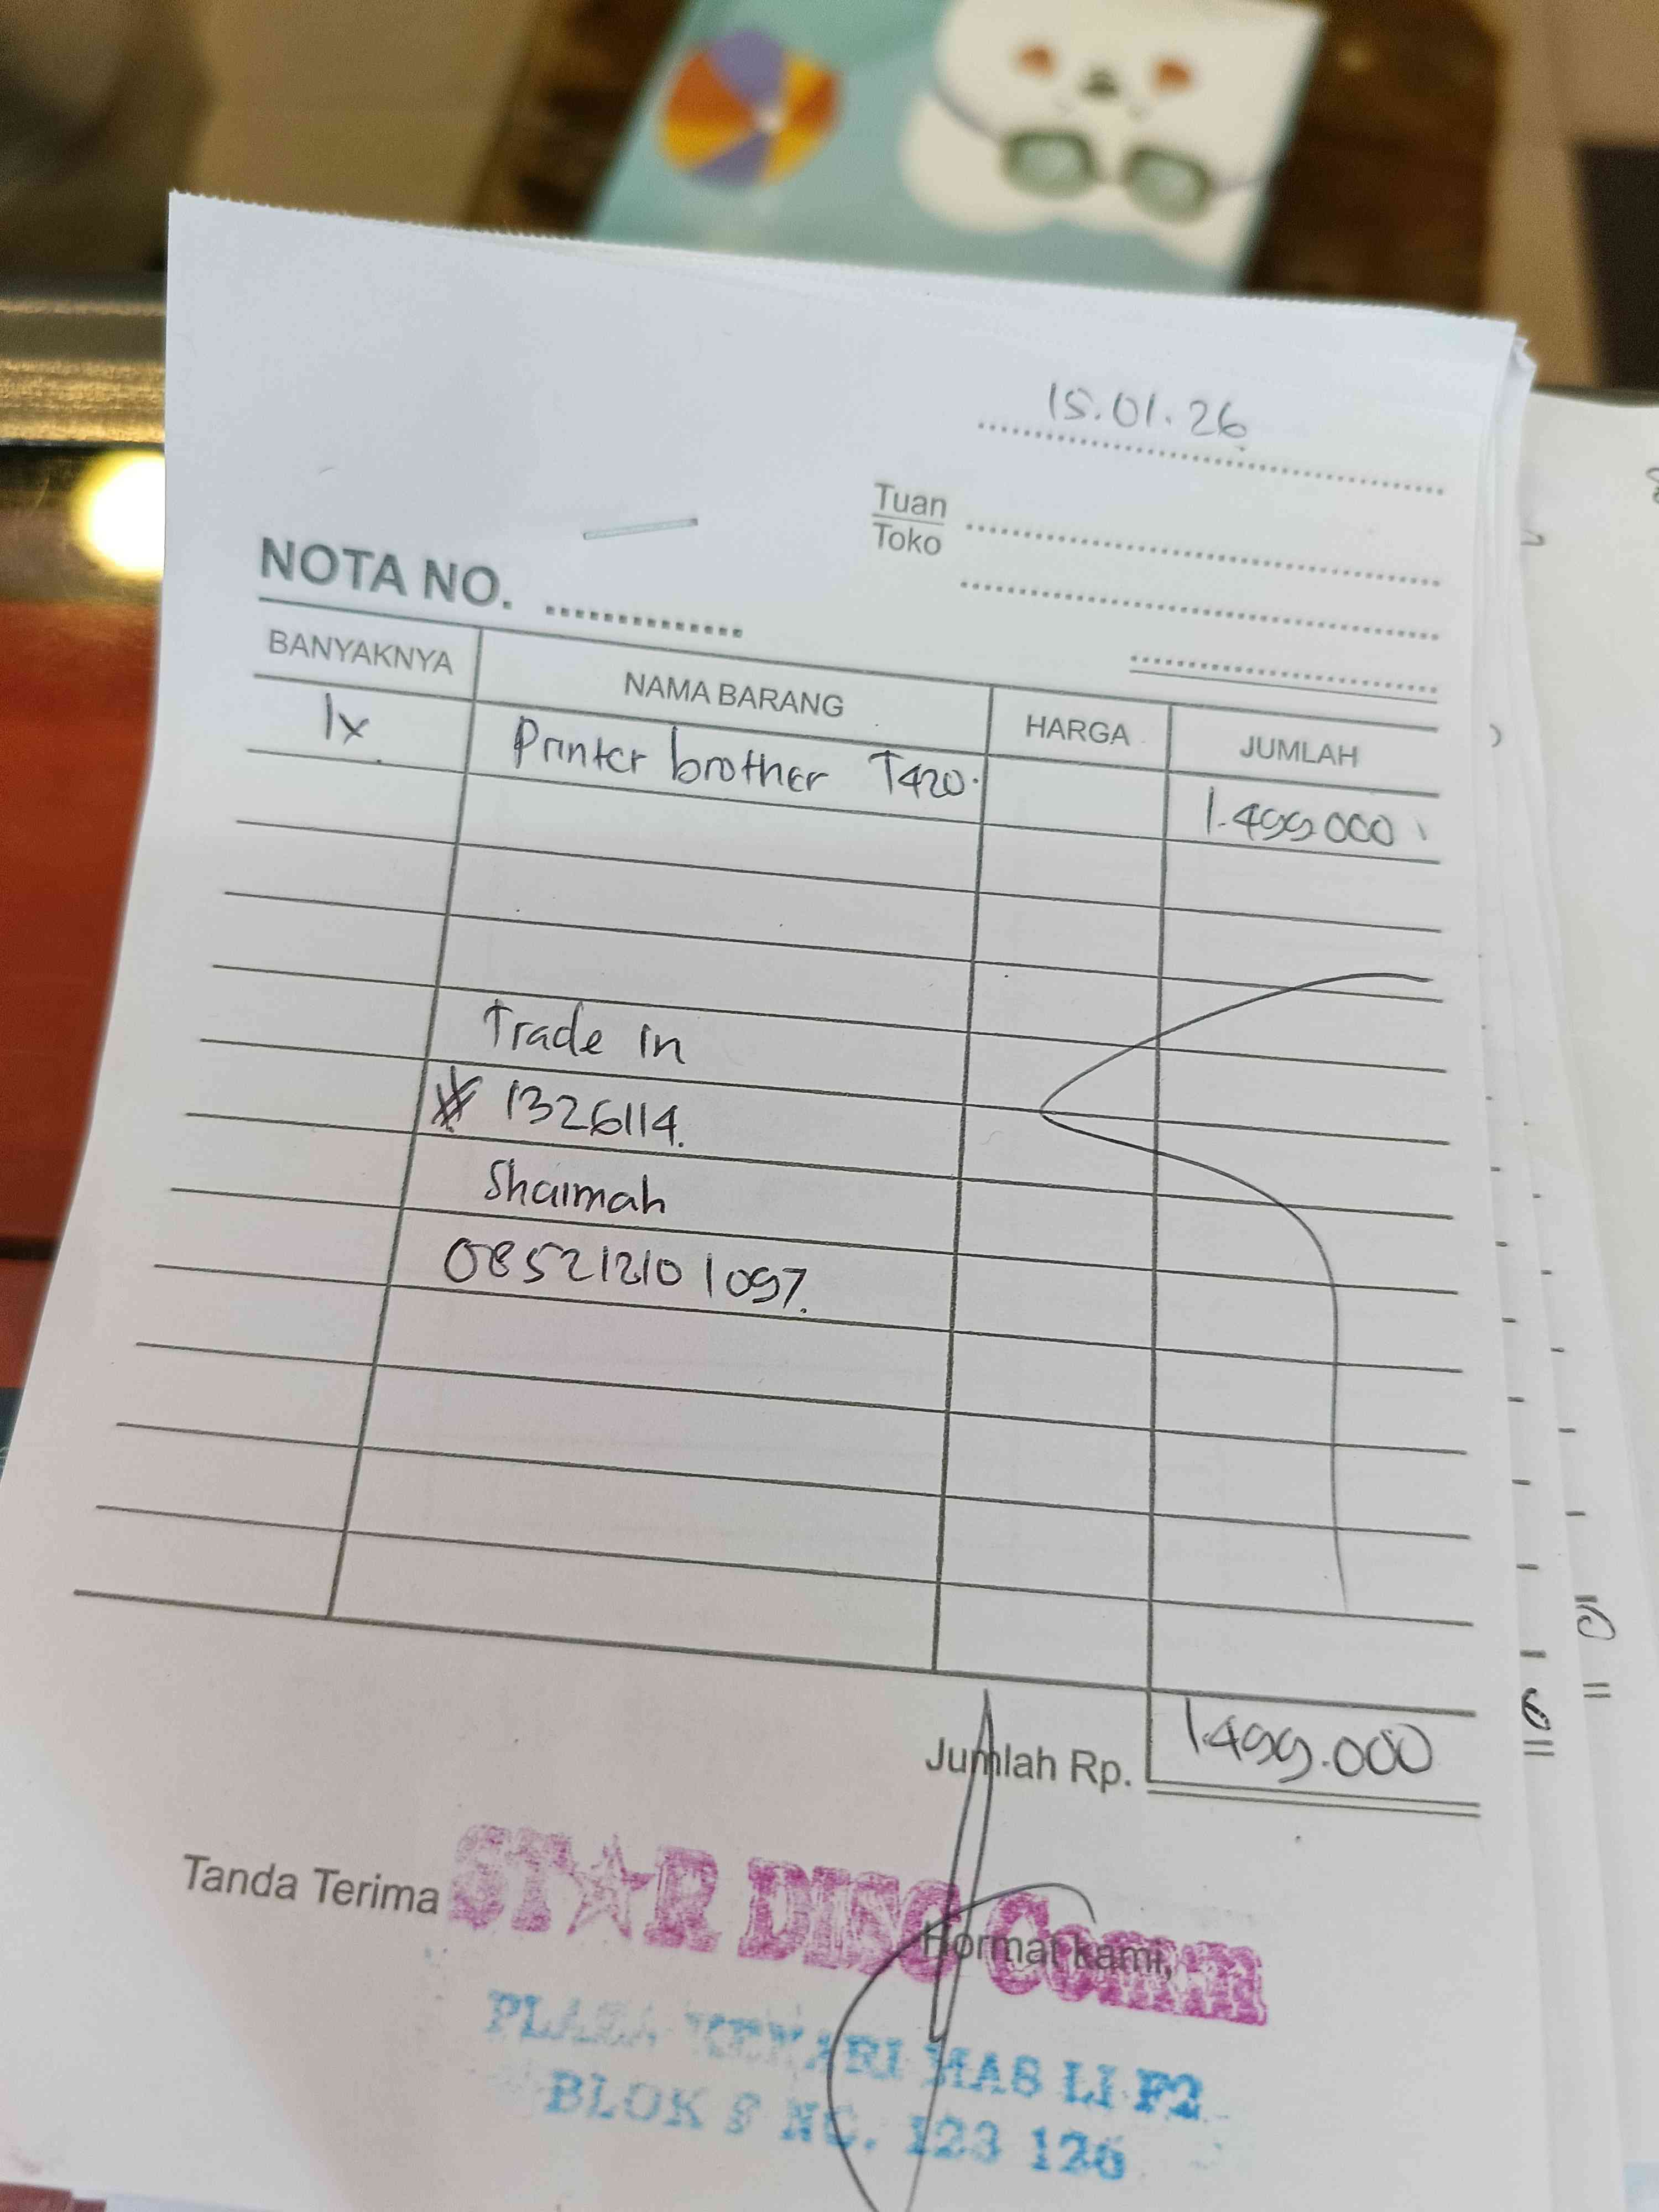 15.01.26
Tuan
Toko
NOTA NO.
BANYAKNYA NAMA BARANG HARGA JUMLAH
1x Printer brother T420. 1.499.000
Trade in
1326114.
Shaimah
085212101097.
Jumlah Rp. 1.499.000
Tanda Terima
Hormat kami,
ST★R DISC Comm
PLAZA KENARI MAS LT F2
BLOK NO. 123 126